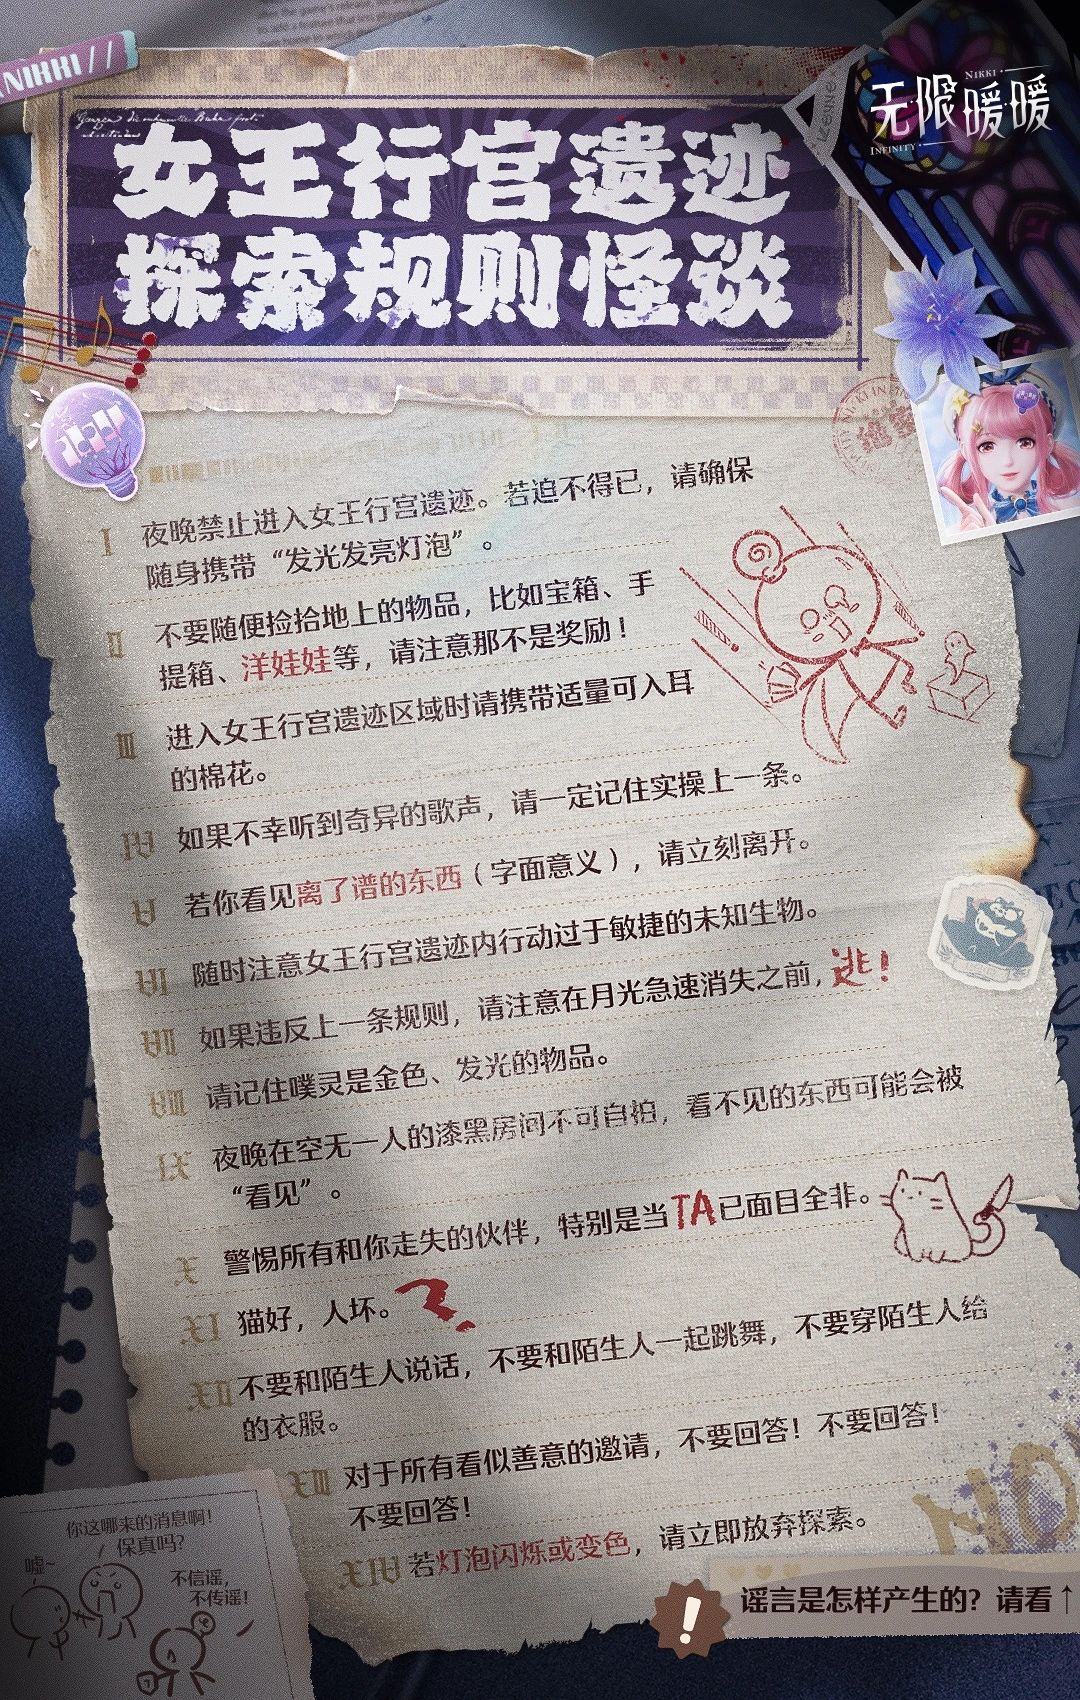 NIKKI//
无限暖暖
NIKKI
INFINITY
女王行宫遗迹
探索规则怪谈
I 夜晚禁止进入女王行宫遗迹。若迫不得已，请确保
随身携带“发光发亮灯泡”。
II 不要随便捡拾地上的物品，比如宝箱、手
提箱、洋娃娃等，请注意那不是奖励！
III 进入女王行宫遗迹区域时请携带适量可入耳
的棉花。
IV 如果不幸听到奇异的歌声，请一定记住实操上一条。
V 若你看见离了谱的东西（字面意义），请立刻离开。
VI 随时注意女王行宫遗迹内行动过于敏捷的未知生物。
VII 如果违反上一条规则，请注意在月光急速消失之前，逃！
VIII 请记住噗灵是金色、发光的物品。
IX 夜晚在空无一人的漆黑房间不可自拍，看不见的东西可能会被
“看见”。
X 警惕所有和你走失的伙伴，特别是当TA已面目全非。
XI 猫好，人坏。?
XII 不要和陌生人说话，不要和陌生人一起跳舞，不要穿陌生人给
的衣服。
XIII 对于所有看似善意的邀请，不要回答！不要回答！
不要回答！
XIV 若灯泡闪烁或变色，请立即放弃探索。
NO
你这哪来的消息啊！
保真吗？
嘘~
不信谣，
不传谣！
谣言是怎样产生的？请看↑